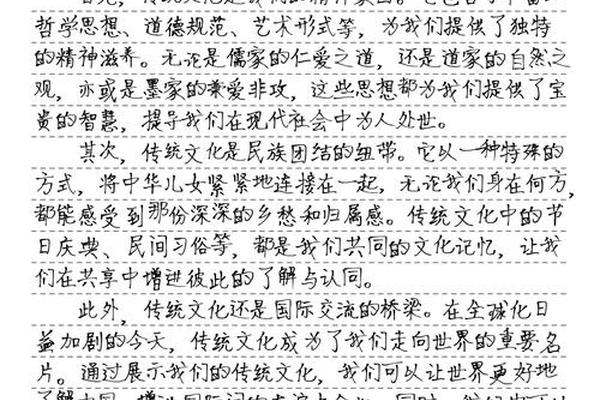 哲学思想、道德规范、艺术形式等，为我们提供了独特
的精神滋养。无论是儒家的仁爱之道，还是道家的自然之
观，亦或是墨家的兼爱非攻，这些思想都为我们提供了宝
贵的智慧，提导我们在现代社会中为人处世。
其次，传统文化是民族团结的纽带。它以一种特殊的
方式，将中华儿女紧紧地连接在一起，无论我们身在何方，
都能感受到那份深深的乡愁和归属感。传统文化中的节
日庆典、民间习俗等，都是我们共同的文化记忆，让我
们在共享中增进彼此的了解与认同。
此外，传统文化还是国际交流的桥梁。在全球化日
益加剧的今天，传统文化成为了我们走向世界的重要名
片。通过展示我们的传统文化，我们可以让世界更好地